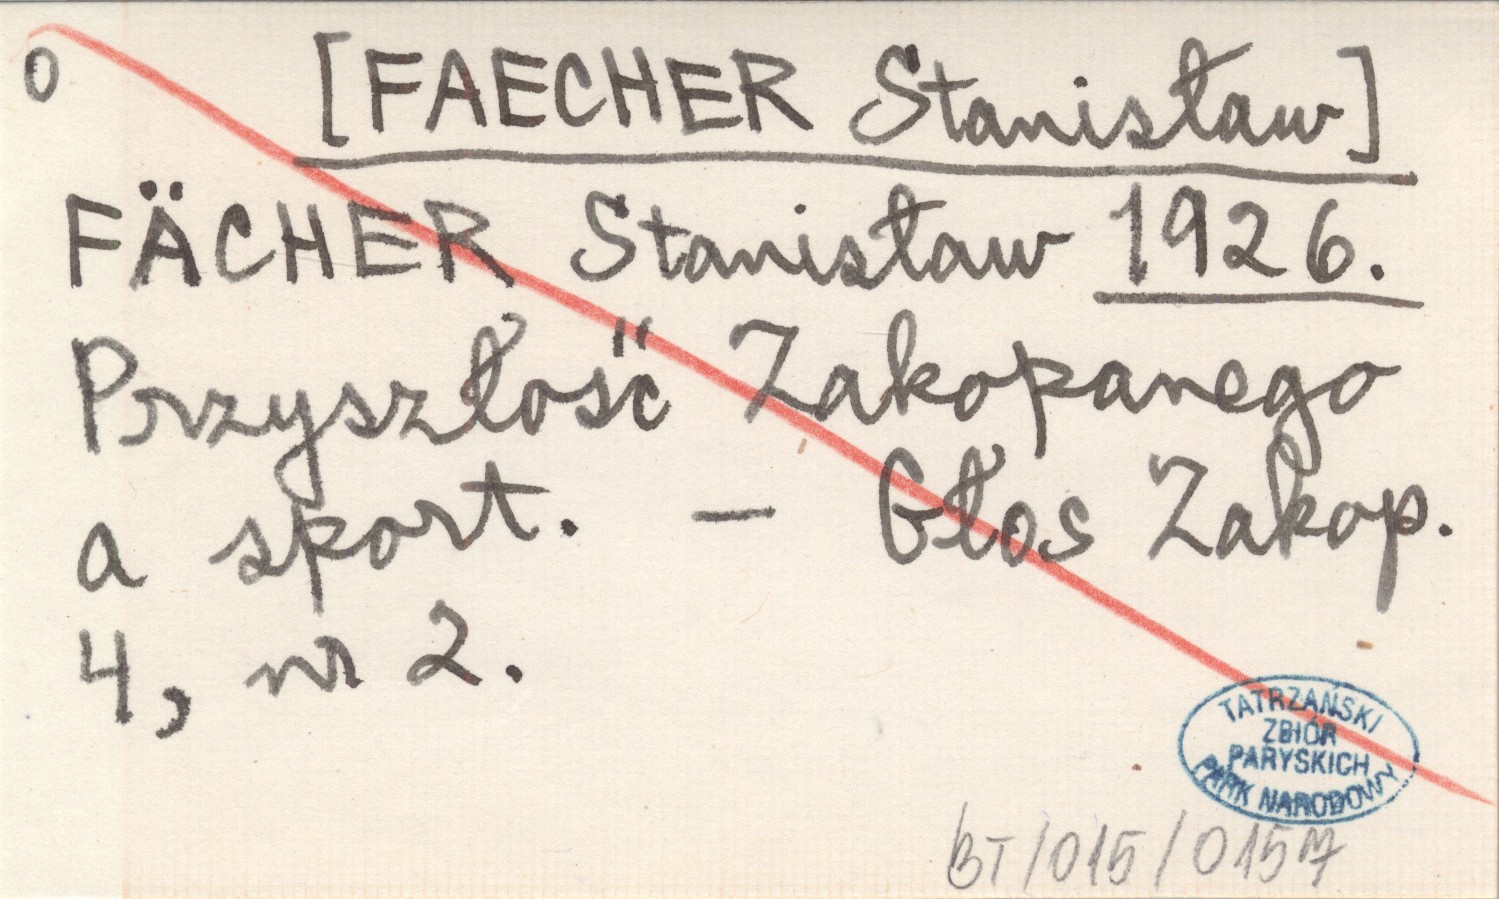 0
[FAECHER Stanisław]
FÄCHER Stanisław 1926.
Przyszłość Zakopanego
a sport. — Głos Zakop.
4, nr 2.
TATRZAŃSKI
ZBIÓR
PARYSKICH
PARK NARODOWY
BT/015/0157